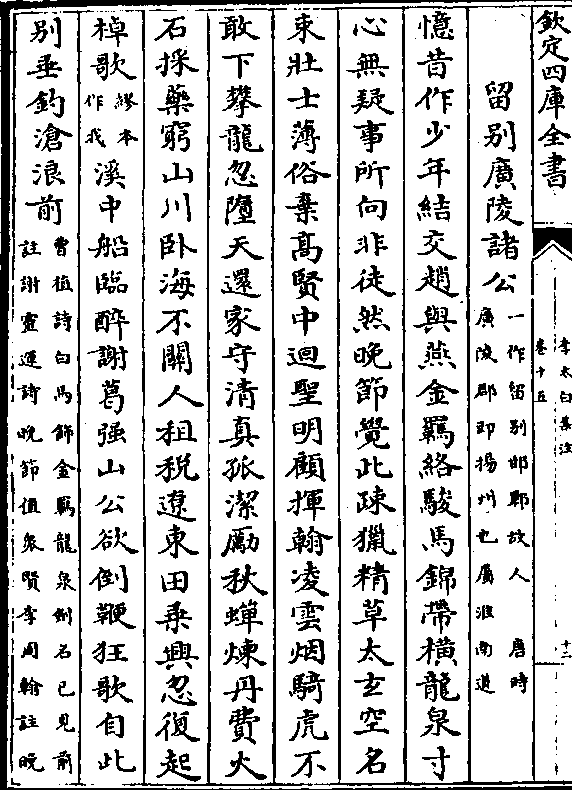 欽定四庫全書
李太白集注
卷十五
十二
留别廣陵諸公
一作留别邯鄲故人
唐時
廣陵郡即揚州也屬淮南道
憶昔作少年結交趙與燕金羈絡駿馬錦帶橫龍泉寸
心無疑事所向非徒然晚節覺此疎獵精草太玄空名
束壯士薄俗棄髙賢中迴聖明顧揮翰凌雲烟騎虎不
敢下攀龍忽墮天還家守清真孤潔勵秋蟬煉丹費火
石採藥窮山川卧海不關人租税遼東田乗興忽復起
棹歌
繆本
作我
溪中船臨醉謝葛强山公欲倒鞭狂歌自此
别垂釣滄浪前
曹植詩白馬飾金羈龍泉劍名已見前
註謝靈運詩晚節值衆賢李周翰註晚